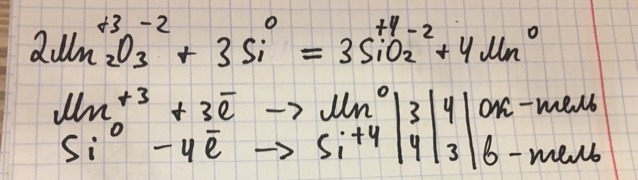 2Mn₂⁺³O₃⁻² + 3Si⁰ = 3Si⁺⁴O₂⁻² + 4Mn⁰
Mn⁺³ + 3ē → Mn⁰ | 3 | 4 | ок-тель
Si⁰ - 4ē → Si⁺⁴ | 4 | 3 | в-тель